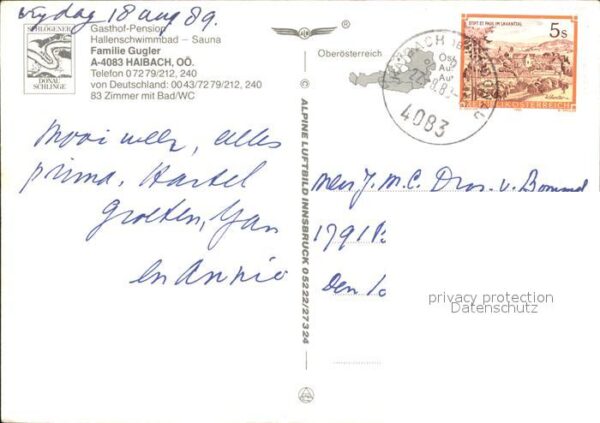 vrijdag 18 aug 89.
SCHLÖGENER
DONAU
SCHLINGE
Gasthof-Pension
Hallenschwimmbad – Sauna
Familie Gugler
A-4083 HAIBACH, OÖ.
Telefon 07279/212, 240
von Deutschland: 0043/7279/212, 240
83 Zimmer mit Bad/WC
Oberösterreich
STIFT ST. PAUL IM LAVANTTAL
5s
REPUBLIK ÖSTERREICH
4083
ALPINE LUFTBILD INNSBRUCK 05222/27324
Mooi weer, alles
prima. Hartel
Groeten, Jan
en Annie
Mevr J. M. C. Dros. v. Bommel
1791
Den
privacy protection
Datenschutz